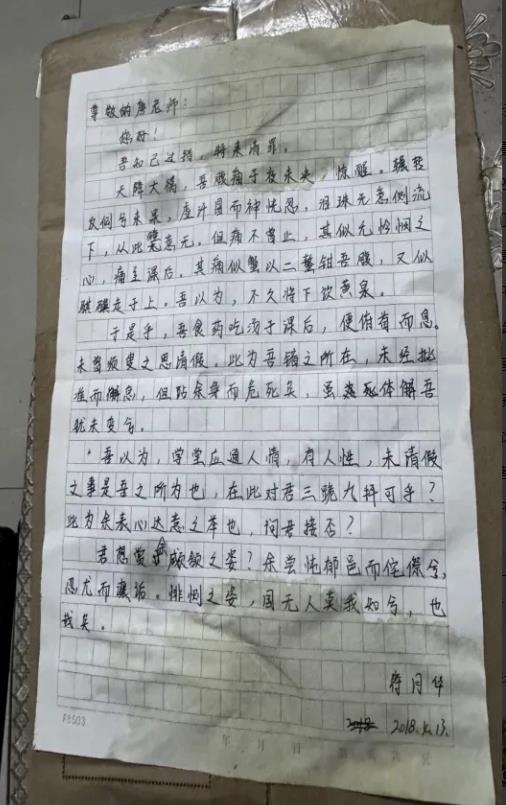 尊敬的唐老师：
您好！
吾知己过错，特来请罪。
天降大祸，吾腹痛于夜未央，惊醒。辗转
反侧
下，从此寞意无。但痛不曾止，其似无怜悯之
心，痛至课后。其痛似蟹以二螯钳吾腹，又似
骐骥走于上。吾以为，不久将下饮黄泉。
于是乎，吾食药吃汤于课后，便俯首而息。
未曾顾叟之思请假。此为吾错之所在，未经批
准而解息，但阽余身而危死矣，虽 死体解吾
犹未变兮。
吾以为，学堂应通人情，有人性，未请假
之事是吾之所为也，在此对君三跪九拜可乎？
此为余表心达意之举也，问君接否？
君想 之姿？余尝忳郁邑而侘傺兮，
忍尤而攘诟。 之姿，国无人莫我如兮，也
哉矣。
符月华
2018.5.13.
FB503
年 月 日